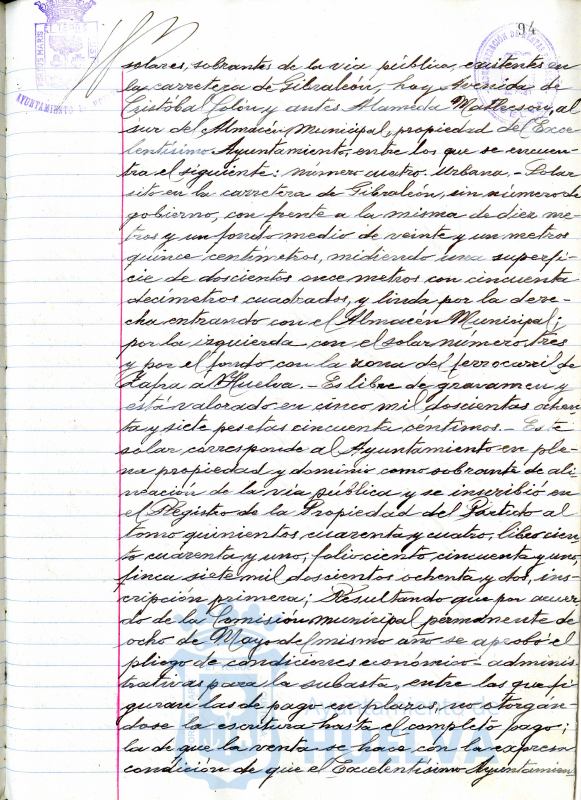 94
AYUNTAMIENTO
solares, sobrantes de la via pública, existentes en
la carretera de Gibraleón, hoy Avenida de
Cristóbal Colón y antes Alameda Matheson, al
sur del Almacén Municipal, propiedad del Exce-
lentísimo Ayuntamiento, entre los que se encuen-
tra el siguiente: número cuatro. Urbana.- Solar
sito en la carretera de Gibraleón, sin número de
gobierno, con frente a la misma de diez me-
tros y un fondo medio de veinte y un metros
quince centímetros, midiendo una superfi-
cie de doscientos once metros con cincuenta
decímetros cuadrados, y linda por la dere-
cha entrando con el Almacén Municipal;
por la izquierda, con el solar número tres
y por el fondo con la zona del ferrocarril de
Zafra a Huelva.- Es libre de gravamen y
está valorado en cinco mil doscientas ochen-
ta y siete pesetas cincuenta centimos.- Este
solar corresponde al Ayuntamiento en ple-
na propiedad y dominio como sobrante de ali-
neación de la via pública y se inscribió en
el Registro de la Propiedad del Partido al
tomo quinientos cuarenta y cuatro, libro cien-
to cuarenta y uno, folio ciento cincuenta y uno,
finca siete mil doscientos ochenta y dos, ins-
cripción primera; Resultando que por acuer-
do de la Comisión municipal permanente de
ocho de Mayo del mismo año se aprobó el
pliego de condiciones económico-adminis-
trativas para la subasta, entre las que fi-
guran las de pago en plazos, no otorgán-
dose la escritura hasta el completo pago;
la de que la venta se hace con la expresa
condición de que el Excelentísimo Ayuntamien-
Ayuntamiento de
HUELVA